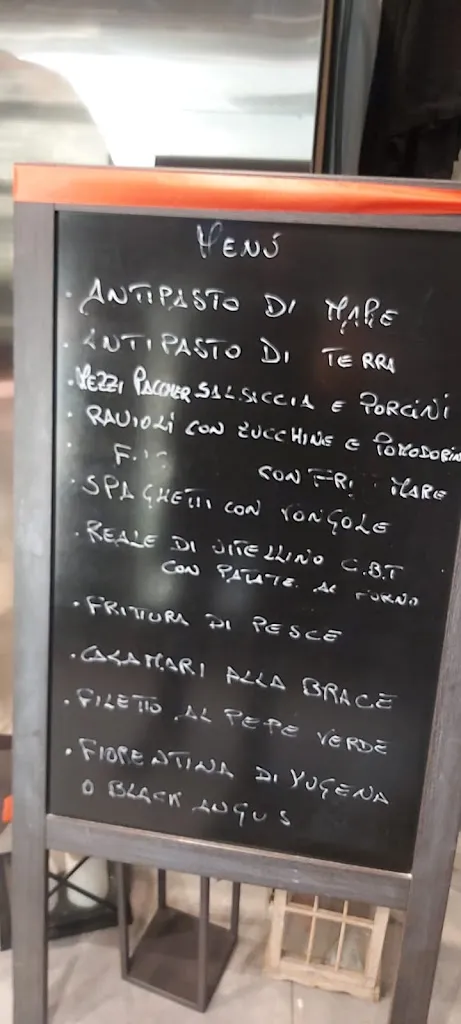 MENÚ
· ANTIPASTO DI MARE
· ANTIPASTO DI TERRA
· MEZZI PACCHER SALSICCIA E PORCINI
· RAVIOLI CON ZUCCHINE E POMODORIN
· CON MARE
· SPAGHETTI CON VONGOLE
· REALE DI VITELLINO C.B.T
CON PATATE AL FORNO
· FRITTURA DI PESCE
· CALAMARI ALLA BRACE
· FILETTO AL PEPE VERDE
· FIORENTINA DI
O BLACK ANGUS